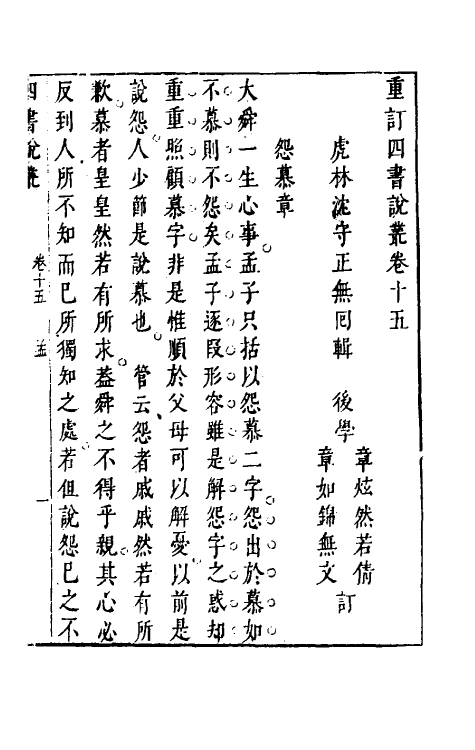 重訂四書說叢卷十五
虎林沈守正無回輯　後學
章炫然若倩
章如錦無文
訂
怨慕章
大舜一生心事孟子只括以怨慕二字怨出於慕如
不慕則不怨矣孟子逐段形容雖是解怨字之惑却
重重照顧慕字非是惟順於父母可以解憂以前是
說怨人少節是說慕也　管云怨者戚戚然若有所
歉慕者皇皇然若有所求蓋舜之不得乎親其心必
反到人所不知而已所獨知之處若但說怨已之不
四書說叢
卷十五　孟　一